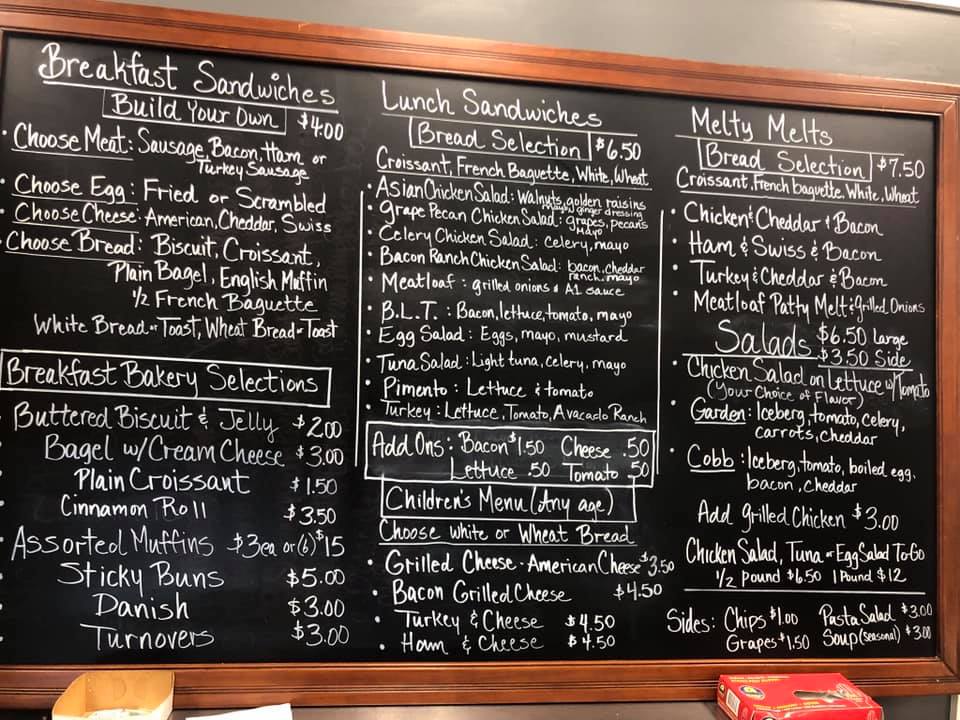 Breakfast Sandwiches
Build Your Own $4.00
• Choose Meat: Sausage, Bacon, Ham or
Turkey Sausage
• Choose Egg: Fried or Scrambled
• Choose Cheese: American, Cheddar, Swiss
• Choose Bread: Biscuit, Croissant,
Plain Bagel, English Muffin
1/2 French Baguette
White Bread or Toast, Wheat Bread or Toast
Breakfast Bakery Selections
Buttered Biscuit & Jelly $2.00
Bagel w/Cream Cheese $3.00
Plain Croissant $1.50
Cinnamon Roll $3.50
Assorted Muffins $3ea or (6) $15
Sticky Buns $5.00
Danish $3.00
Turnovers $3.00
Lunch Sandwiches
Bread Selection $6.50
Croissant, French Baguette, White, Wheat
• Asian Chicken Salad: walnuts, golden raisins
mayo/ginger dressing
• Grape Pecan Chicken Salad: grapes, pecans
mayo
• Celery Chicken Salad: celery, mayo
• Bacon Ranch Chicken Salad: bacon, cheddar
ranch, mayo
• Meatloaf: grilled onions & A1 sauce
• B.L.T.: Bacon, lettuce, tomato, mayo
• Egg Salad: Eggs, mayo, mustard
• Tuna Salad: Light tuna, celery, mayo
• Pimento: Lettuce & tomato
• Turkey: Lettuce, Tomato, Avacado Ranch
Add Ons: Bacon $1.50 Cheese .50
Lettuce .50 Tomato .50
Children's Menu (Any age)
Choose White or Wheat Bread
• Grilled Cheese - American Cheese $3.50
• Bacon Grilled Cheese $4.50
• Turkey & Cheese $4.50
• Ham & Cheese $4.50
Melty Melts
Bread Selection $7.50
Croissant, French baguette, White, Wheat
• Chicken & Cheddar & Bacon
• Ham & Swiss & Bacon
• Turkey & Cheddar & Bacon
• Meatloaf Patty Melt & Grilled Onions
Salads $6.50 large
$3.50 Side
• Chicken Salad on Lettuce w/Tomato
(Your Choice of Flavor)
• Garden: Iceberg, tomato, celery,
carrots, cheddar
• Cobb: Iceberg, tomato, boiled egg,
bacon, cheddar
Add grilled Chicken $3.00
Chicken Salad, Tuna or Egg Salad To-Go
1/2 Pound $6.50 1 Pound $12
Sides: Chips $1.00 Pasta Salad $3.00
Grapes $1.50 Soup (seasonal) $3.00